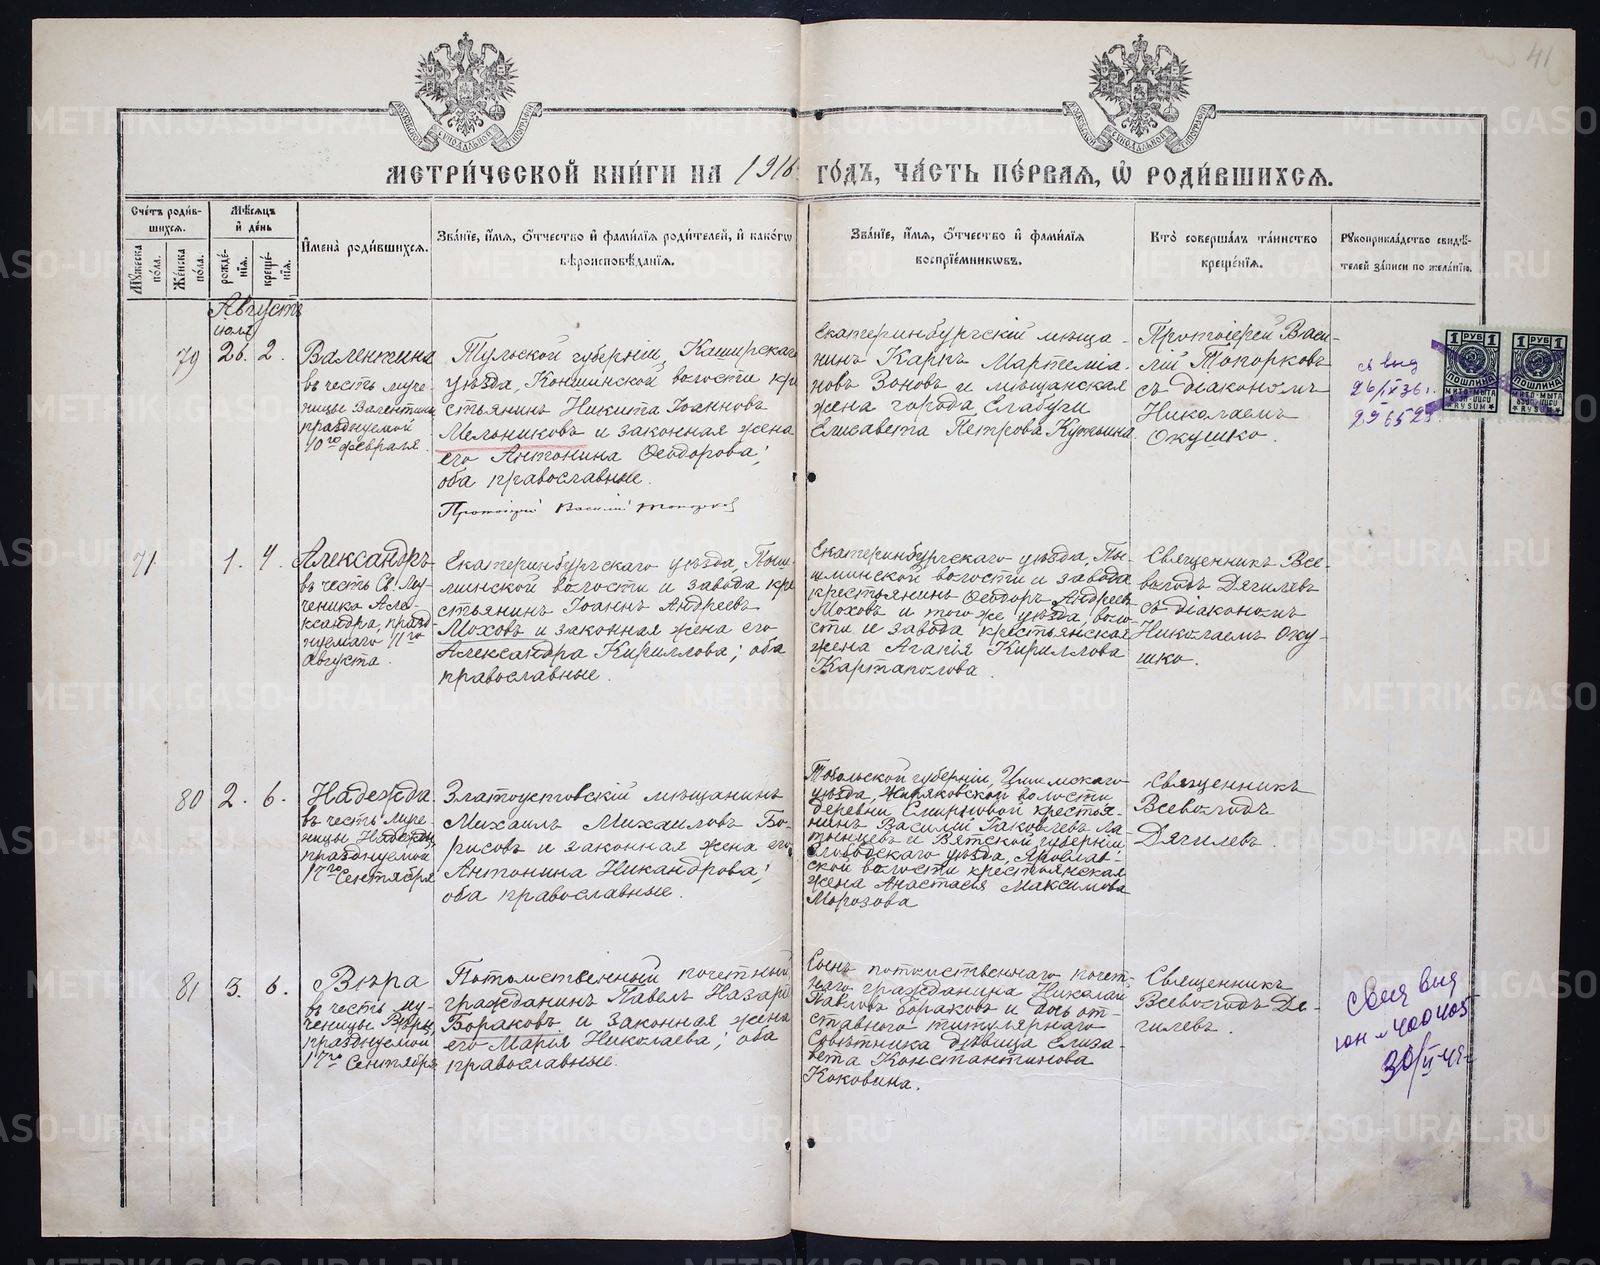 41
МЕТРИ́ЧЕСКОЙ КНИ́ГИ НА 1916 ГО́ДЪ, ЧА́СТЬ ПЕ́РВАЯ, Ѽ РОДИ́ВШИХСѦ.
Сче́тъ роди́в-
шихсѧ.
Мꙋжеска по́ла.
Же́нска по́ла.
Мѣ́сѧцъ
и҆ де́нь
рожде́-
нїѧ.
креще́-
нїѧ.
И҆мена̀ роди́вшихсѧ.
Зва́нїе, и҆́мѧ, ѻ҆́тчество и҆ фамі́лїѧ роди́телей, и҆ како́гѡ
вѣроисповѣ́данїѧ.
Зва́нїе, и҆́мѧ, ѻ҆́тчество и҆ фамі́лїѧ
воспрїе́мникѡвъ.
Кто̀ соверша́лъ та́инство
креще́нїѧ.
Рꙋкоприкла́дство свидѣ́-
телей за́писи по жела́нїю.
Августъ
іюля
79 26. 2.
Валентина
въ честь муче-
ницы Валентины
празднуемой
10го февраля.
Тульской губерніи, Каширскаго
уѣзда, Коншинской волости кре
стьянинъ Никита Іоанновъ
Мельниковъ и законная жена
его Антонина Ѳеодорова;
оба православные.
Протоіерей Василій Топорков
Екатеринбургскій мѣща-
нинъ Карпъ Мартеміа-
новъ Зоновъ и мѣщанская
жена города Елабуги
Елисавета Петрова
Протоіерей Васи-
лій Топорковъ
съ діакономъ
Николаемъ
Окушко.
1 РУБ 1
ПОШЛИНА
1 РУБ 1
ПОШЛИНА
71 1. 4.
Александръ
въ честь Св. Му
ченика Але-
ксандра, празд-
нуемаго 11го
Августа.
Екатеринбургскаго уѣзда, Пыш-
минской волости и завода кре
стьянинъ Іоаннъ Андреевъ
Моховъ и законная жена его
Александра Кириллова; оба
православные.
Екатеринбургскаго уѣзда, Пы-
шминской волости и завода
крестьянинъ Ѳеодоръ Андреевъ
Моховъ и того же уѣзда, воло-
сти и завода крестьянская
жена Агапія Кириллова
Картаполова.
Священникъ Все-
володъ Дягилевъ
съ діакономъ
Николаемъ Оку-
шко.
80 2. 6.
Надежда
въ честь муче-
ницы Надежды,
празднуемой
17го Сентября
Златоустовскій мѣщанинъ
Михаилъ Михаиловъ Бо-
рисовъ и законная жена его
Антонина Никандрова;
оба православные.
Тобольской губерніи, Ишимскаго
уѣзда, Жиряковской волости
деревни Смирновой крестья-
нинъ Василій Іаковлевъ Ла-
тынцевъ и Вятской губерніи
Слободскаго уѣзда, Ярослав-
ской волости крестьянская
жена Анастасія Максимова
Морозова
Священникъ
Всеволодъ
Дягилевъ.
81 3. 6.
Вѣра
въ честь му-
ченицы Вѣры,
празднуемой
17го Сентября
Потомственный почетный
гражданинъ Павелъ Назарі
Бораковъ и законная жена
его Марія Николаева; оба
православные.
Сынъ потомственнаго почет-
наго гражданина Николай
Павловъ Бораковъ и дочь от-
ставного титулярнаго
Совѣтника дѣвица Елиза-
вета Константинова
Коковина.
Священникъ
Всеволодъ Дя-
гилевъ.